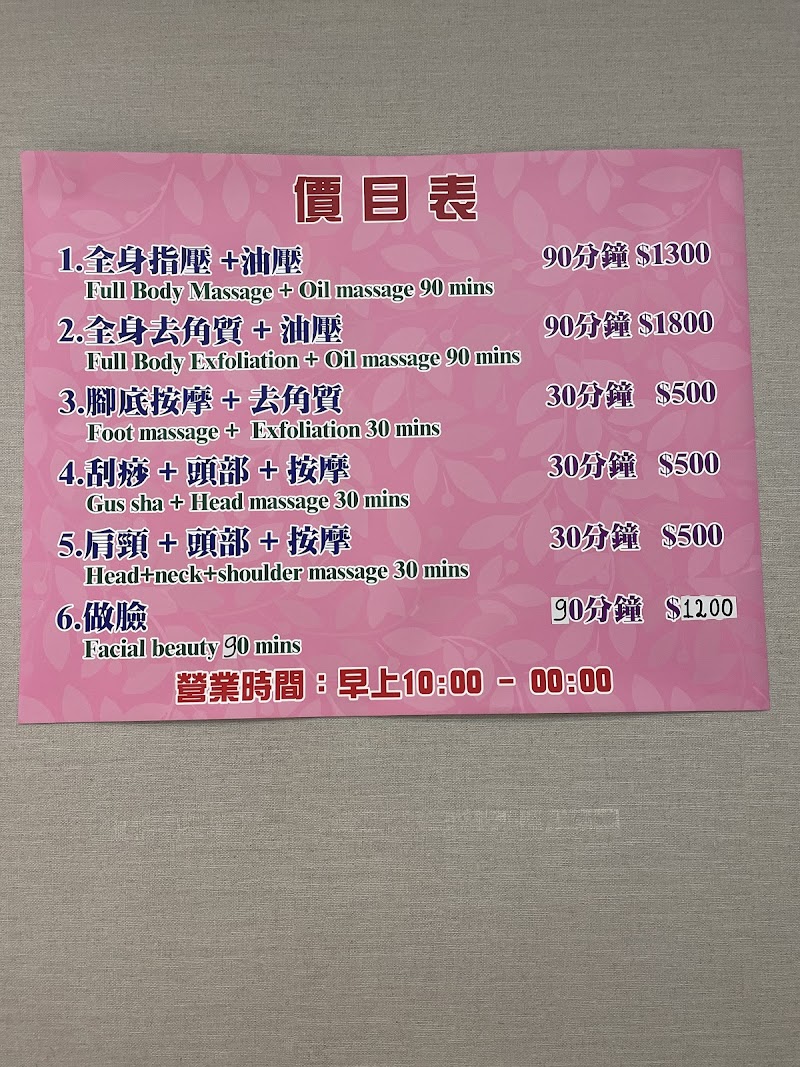 價目表
1.全身指壓 +油壓 90分鐘 $1300
Full Body Massage + Oil massage 90 mins
2.全身去角質 + 油壓 90分鐘 $1800
Full Body Exfoliation + Oil massage 90 mins
3.腳底按摩 + 去角質 30分鐘 $500
Foot massage + Exfoliation 30 mins
4.刮痧 + 頭部 + 按摩 30分鐘 $500
Gus sha + Head massage 30 mins
5.肩頸 + 頭部 + 按摩 30分鐘 $500
Head+neck+shoulder massage 30 mins
6.做臉 90分鐘 $1200
Facial beauty 90 mins
營業時間：早上10:00 - 00:00